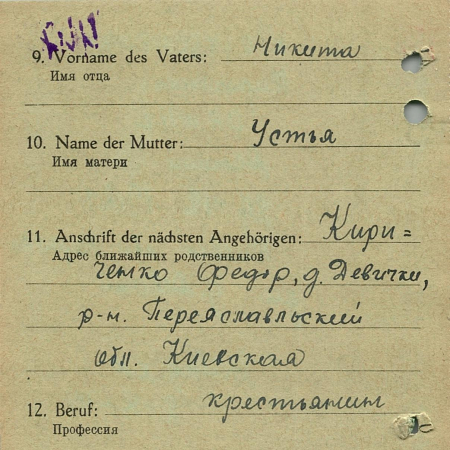 9. Vorname des Vaters: Никита
Имя отца
10. Name der Mutter: Устья
Имя матери
11. Anschrift der nächsten Angehörigen: Кири=
Адрес ближайших родственников
ченко Федор, д. Девички,
р-н. Переяславльский
обл. Киевская
12. Beruf: крестьянин
Профессия